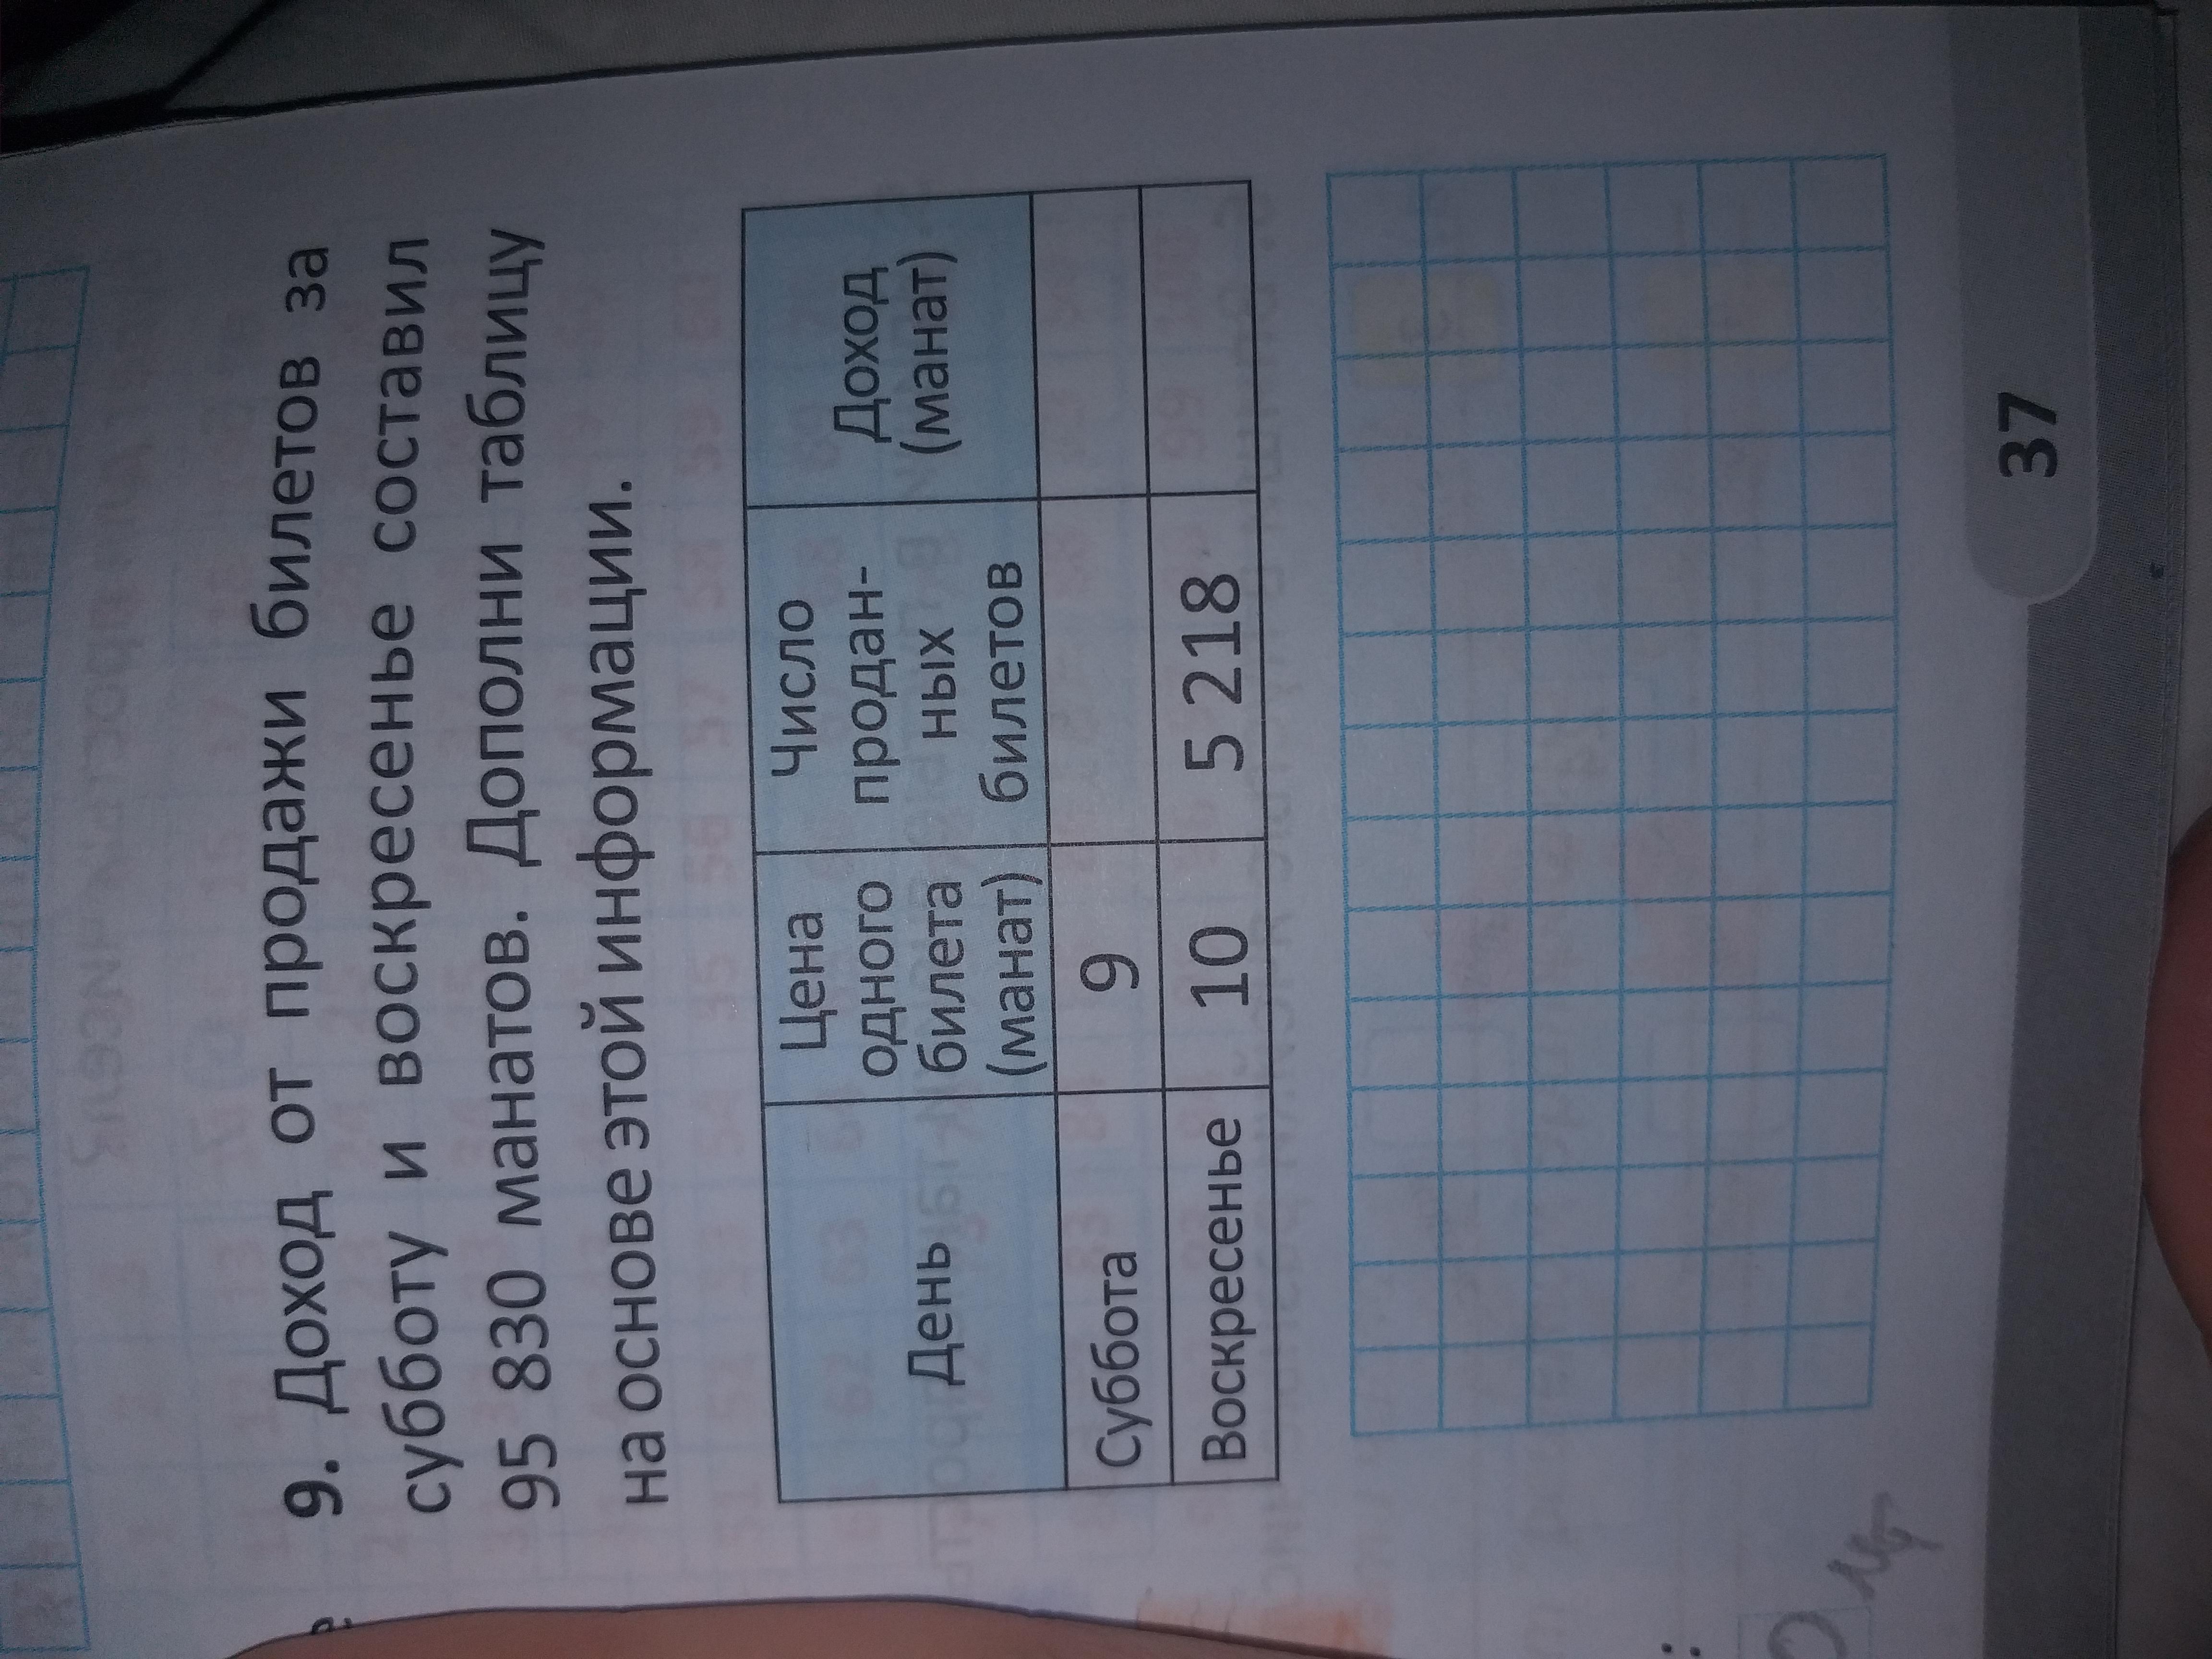 9. Доход от продажи билетов за
субботу и воскресенье составил
95 830 манатов. Дополни таблицу
на основе этой информации.
День
Цена
одного
билета
(манат)
Число
продан-
ных
билетов
Доход
(манат)
Суббота
9
Воскресенье
10
5 218
37